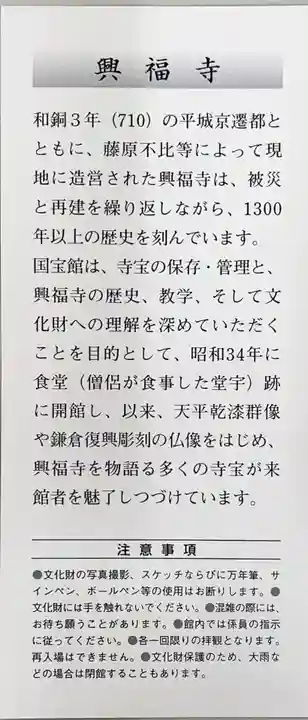 興福寺
和銅3年（710）の平城京遷都と
ともに、藤原不比等によって現
地に造営された興福寺は、被災
と再建を繰り返しながら、1300
年以上の歴史を刻んでいます。
国宝館は、寺宝の保存・管理と、
興福寺の歴史、教学、そして文
化財への理解を深めていただく
ことを目的として、昭和34年に
食堂（僧侶が食事した堂宇）跡
に開館し、以来、天平乾漆群像
や鎌倉復興彫刻の仏像をはじめ、
興福寺を物語る多くの寺宝が来
館者を魅了しつづけています。
注意事項
●文化財の写真撮影、スケッチならびに万年筆、サ
インペン、ボールペン等の使用はお断りします。●
文化財には手を触れないでください。●混雑の際には、
お待ち願うことがあります。●館内では係員の指示
に従ってください。●各一回限りの拝観となります。
再入場はできません。●文化財保護のため、大雨な
どの場合は閉館することもあります。